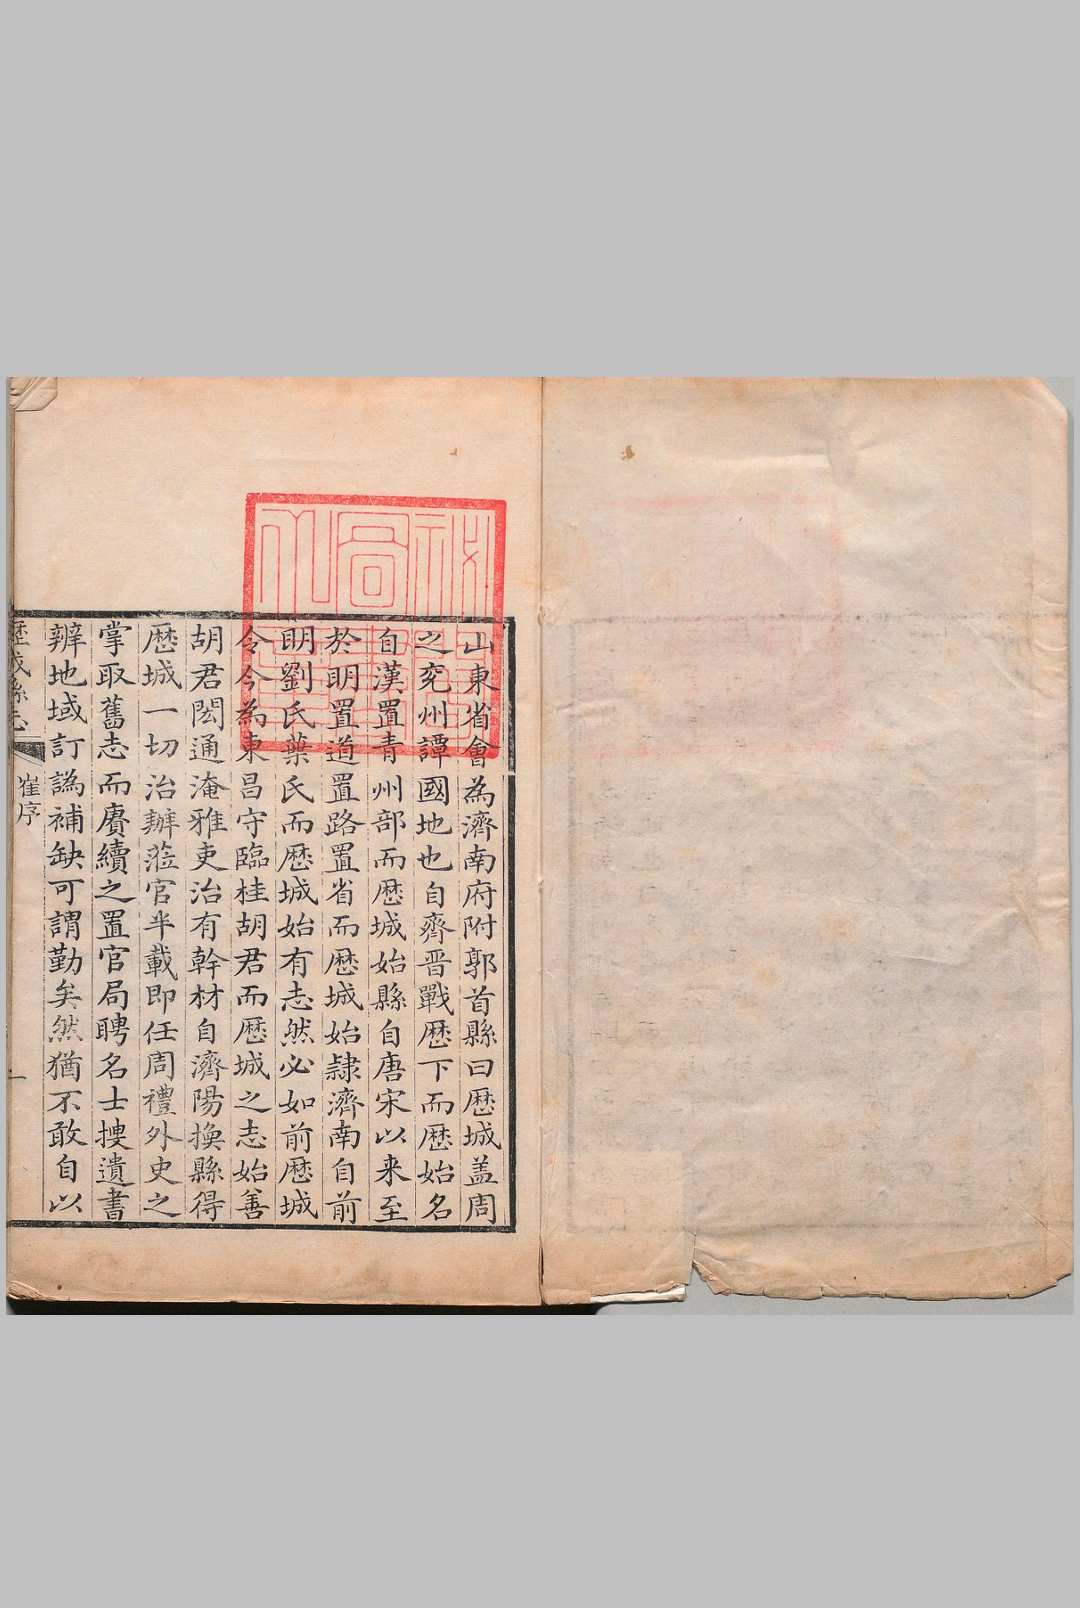 山東省會為濟南府附郭首縣曰歷城盖周
之兖州譚國地也自齊晋戰歷下而歷始名
自漢置青州部而歷城始縣自唐宋以来至
於明置道置路置省而歷城始隷濟南自前
明劉氏葉氏而歷城始有志然必如前歷城
令今為東昌守臨桂胡君而歷城之志始善
胡君閎通淹雅吏治有幹材自濟陽換縣得
歷城一切治辦蒞官半載即任周禮外史之
掌取舊志而賡續之置官局聘名士搜遺書
辨地域訂譌補缺可謂勤矣然猶不敢自以
歷城縣志
崔序
一